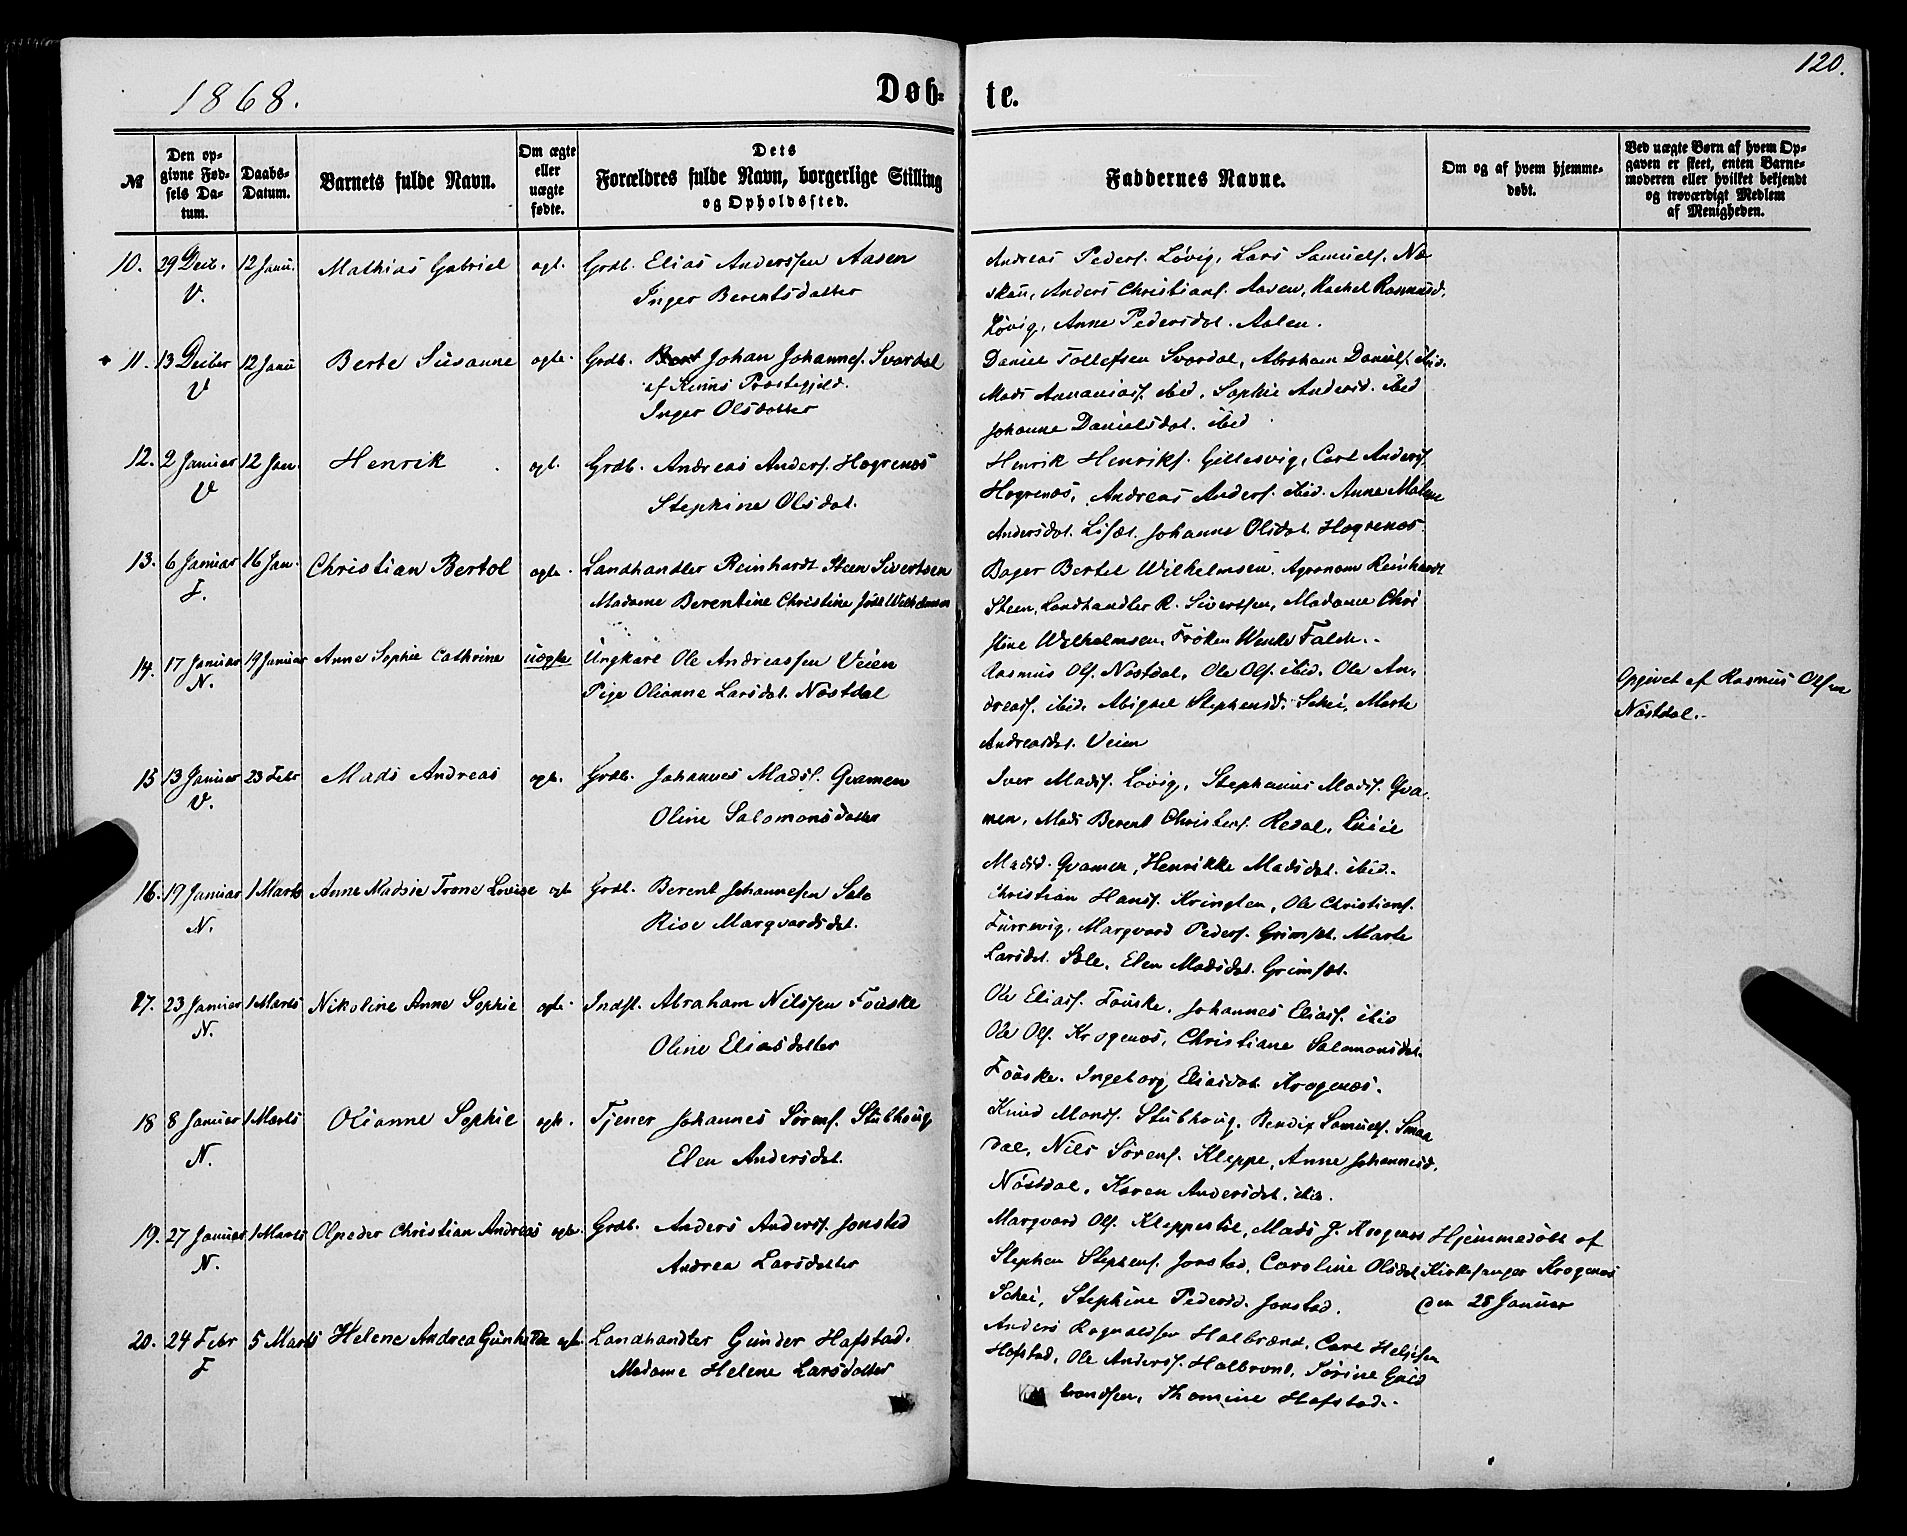 120.
1868.
Døb- te.
№
Den opgivne Fødsels Datum.
Daabs-Datum.
Barnets fulde Navn.
Om ægte eller uægte fødte.
Dets Forældres fulde Navn, borgerlige Stilling og Opholdssted.
Faddernes Navne.
Om og af hvem hjemmedøbt.
Ved uægte Børn af hvem Opgaven er skeet, enten Barnemoderen eller hvilket bekjendt og troværdigt Medlem af Menigheden.
10. 29 Decb. 12 Janu. Mathias Gabriel egt. Grdb. Elias Anderssen Aasen
V. Inger Berentsdatter
Andreas Peders. Løvig, Lars Samuels. Næ
skøu, Anders Christians. Aasen, Rachel Rasmusd.
Løvig, Anne Pedersdat. Aasen.
11. 13 Decber 12 Janu Berte Susanne egte. Grdb. Johan Johannes. Svardal
V af Kinns Præstegjeld.
Inger Olsdatter
Daniel Tollefsen Svardal, Abraham Daniels. ibid.
Mads Annanias. ibid. Sophie Andersd. ibid
Johanne Danielsdat. ibid
12. 2 Januar 12 Jan. Henrik egt. Grdb. Andreas Anders. Hegrenæs
V Stephine Olsdat.
Henrik Henriks. Gillesvig, Carl Anders.
Hegrenæs, Andreas Anders. ibid. Anne Malene
Andersdat. Liset. Johanne Olsdat. Hegrenæs
13. 6 Januar 16 Jan. Christian Bertol egte. Landhandler Reinhardt Steen Sivertsen
F. Madame Berentine Christine Wilhelmsen
Bager Bertel Wilhelmsen. Agronom Reinhardt
Steen, Landhandler R. Sivertsen, Madame Chri
stine Wilhelmsen, Frøken Wenke Falch.
14. 17 Januar 19 Januar Anne Sophie Cathrine uegte Ungkarl Ole Andreassen Veien
N. Pige Olianne Larsdat. Nøstdal
Rasmus Ols. Nøstdal, Ole Ols. ibid. Ole An,
dreass. ibid. Abigael Stephensd. Schei, Marte
Andreasdat. Veien
Opgivet af Rasmus Olsen
Nøstdal.
15 13 Januar 23 Febr Mads Andreas egt. Grdb. Johannes Mads. Qvamen
V. Oline Salomonsdatter
Iver Mads. Løvig, Stephanus Mads. Qva-
men, Mads Berent Christens. Redal, Lucie
Madsd. Qvamen, Henrikke Madsdat. ibid.
16. 19 Januar 1 Marts Anne Madsie Trone Lovise egte Grdb. Berent Johannesen Sole
N. Rise Marqvardsdat.
Christian Hans. Kringlen, Ole Christians.
Furrevig, Marqvard Peders. Grimset. Marte
Larsdat. Sole, Elen Madsdat. Grimset.
17. 23 Januar 1 Marts Nikoline Anne Sophie egte. Indst. Abraham Nilssen Fouske
N. Oline Eliasdatter
Ole Elias. Fouske, Johannes Elias. ibid
Ole Ols. Krogenæs, Christiane Salomonsdat.
Fouske. Ingeborg Eliasdat. Krogenæs.
18 8 Januar 1 Marts Olianne Sophie egte. Tjener Johannes Sørens. Stubhoug
N. Elen Andersdat.
Knud Mons. Stubhoug. Bendix Samuels. Smaa
dal, Nils Sørens. Kleppe, Anne Johannesd.
Nøstdal, Karen Andersdat. ibid.
19. 27 Januar 1 Marts Olpeder Christian Andreas egte. Grdb. Anders Anders. Jonstad
N. Andrea Larsdatter
Marqvard Ols. Kleppestøl, Mads J. Krogenæs
Stephen Stephens. Jonstad, Caroline Olsdat
Schei, Stephine Pedersd. Jonstad.
Hjemmedøbt af
Kirkesanger Krogenæs
den 28 Januar
20. 24 Febr 5 Marts Helene Andrea Gunhilde egt. Landhandler Gunder Hafstad.
F Madame Helene Larsdatter
Anders Ragnaldsen Halbrend, Carl Helgesen
Hafstad, Ole Anders. Halbrend, Torine Guld
brandsen, Thomine Hafstad.